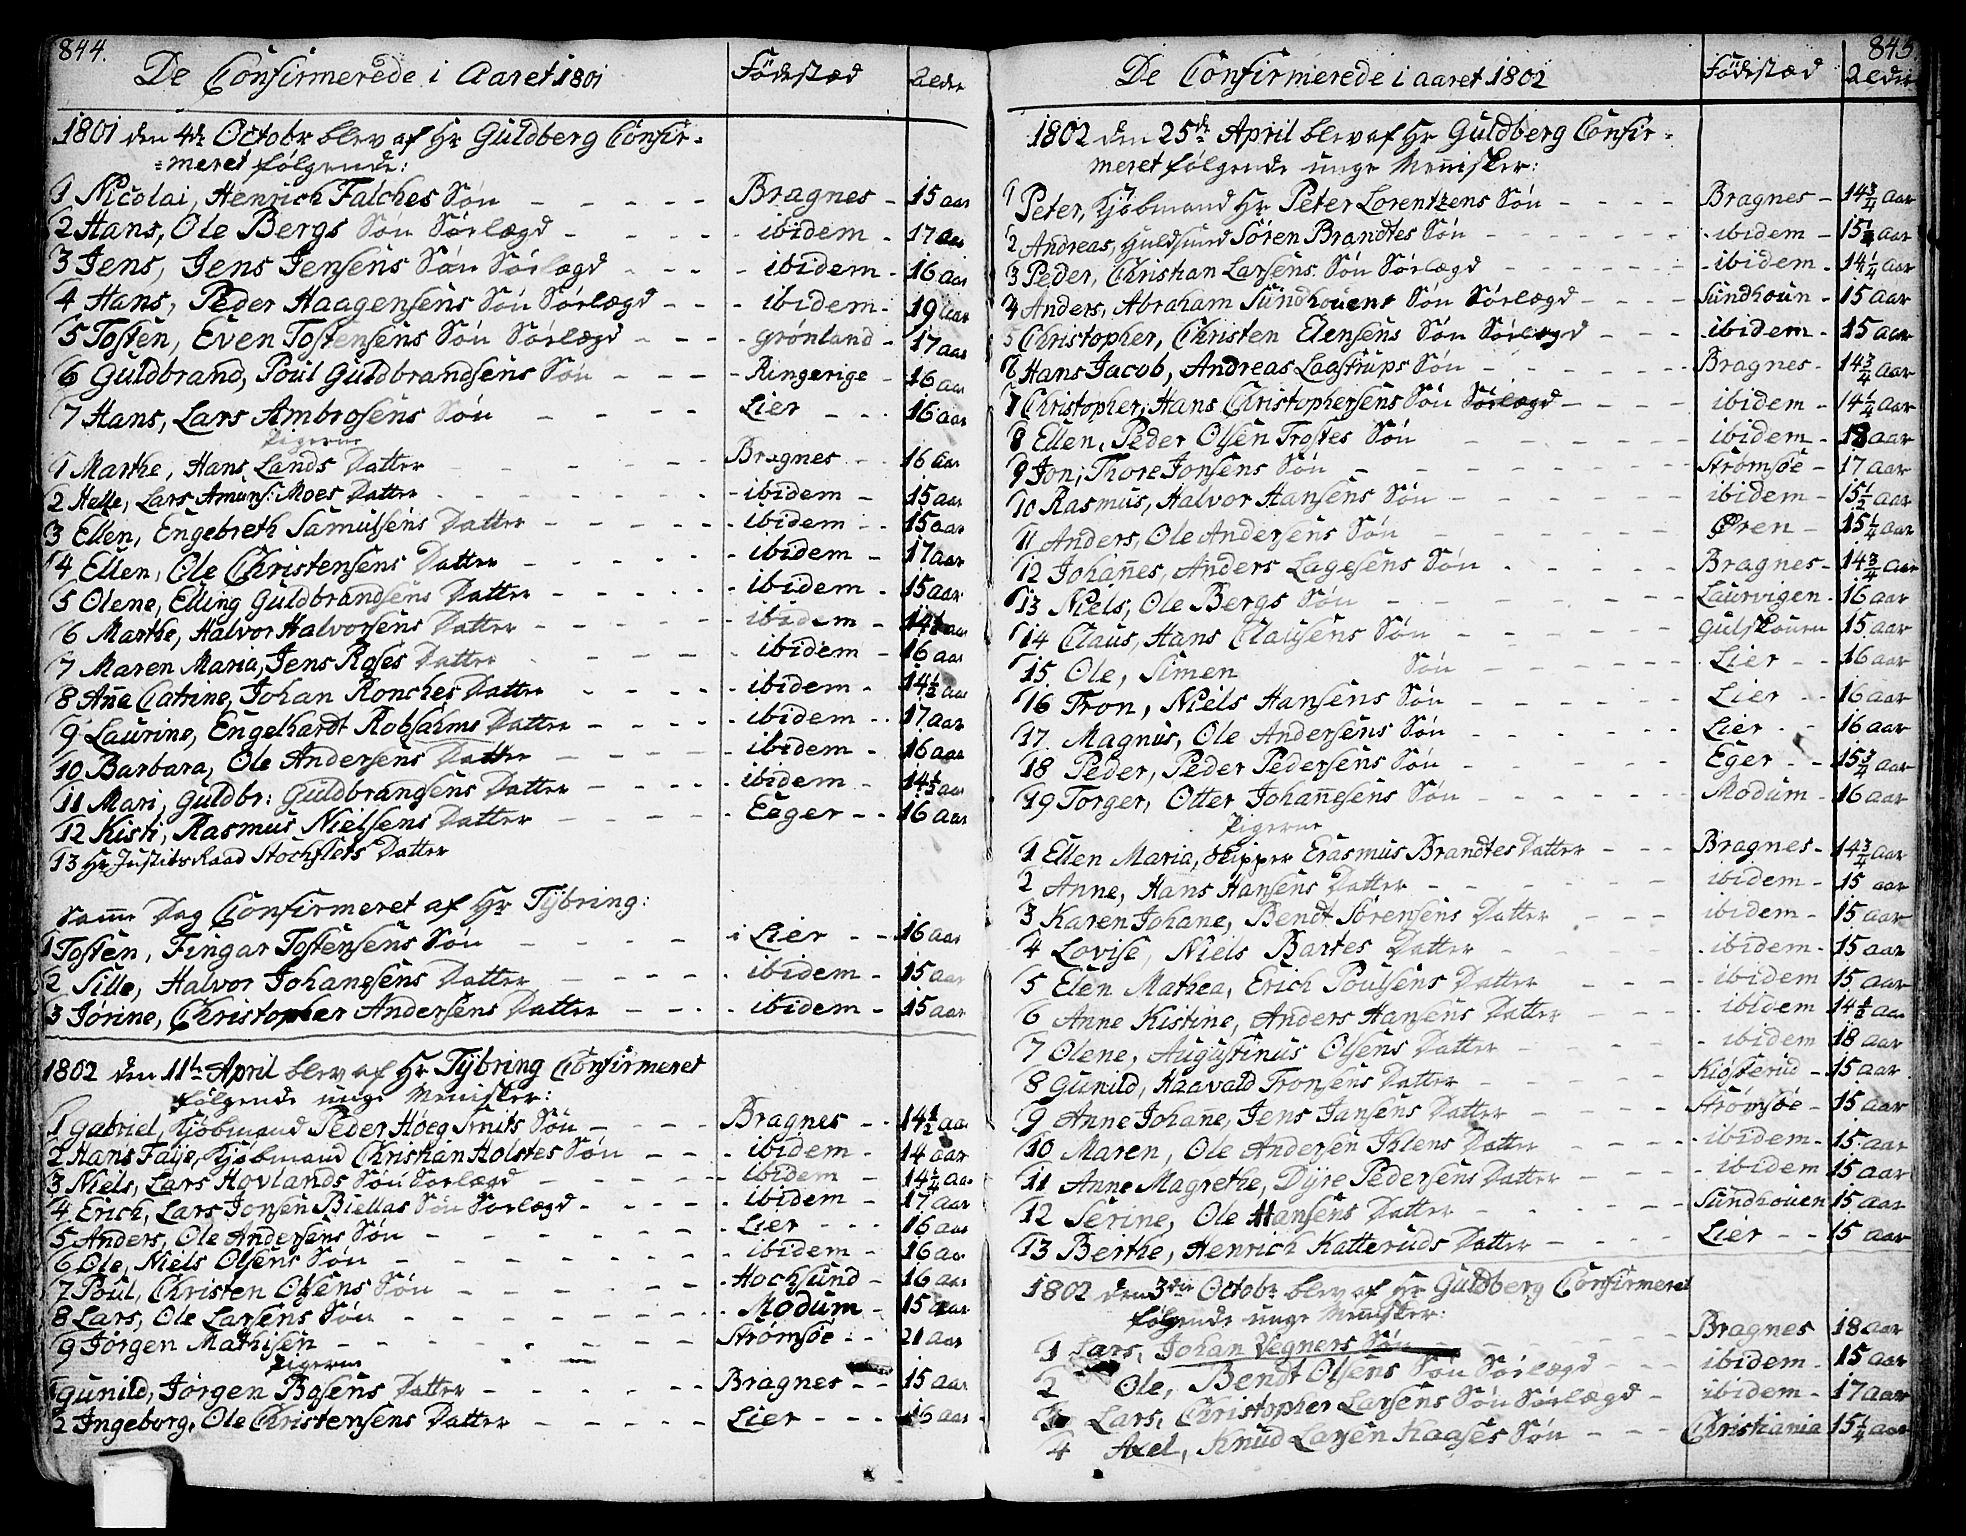 844.
De Confirmerede i Aaret 1801 Födestæd Alder
1801 den 4de Octobr blev af Hr Guldberg Confir-
=meret følgende:
1 Nicolai, Henrich Falches Sön Bragnes 15 aar
2 Hans, Ole Bergs Sön Sörlægd ibidem 17 aar
3 Jens, Jens Jensens Sön Sörlægd ibidem 16 aar
4 Hans, Peder Haagensens Sön Sörlægd ibidem 19 aar
5 Tosten, Even Tostensens Sön Sörlægd grönland 17 aar
6 Guldbrand, Poul Guldbrandsens Sön Ringerige 16 aar
7 Hans, Lars Ambrosens Sön Lier 16 aar
Pigerne
1 Marthe, Hans Lands Datter Bragnes 16 aar
2 Helle, Lars Amuns: Moes Datter ibidem 15 aar
3 Ellen, Engebreth Samulsens Datter ibidem 15 aar
4 Ellen, Ole Christensens Datter ibidem 17 aar
5 Olene, Elling Guldbrandsens Datter ibidem 15 aar
6 Marthe, Halvor Halvorsens Datter ibidem 14½ aar
7 Maren Maria, Jens Roses Datter ibidem 16 aar
8 Ane Catrine, Johan Ronches Datter ibidem 14½ aar
9 Laurine, Engelhardt Robsahms Datter ibidem 17 aar
10 Barbara, Ole Andersens Datter ibidem 16 aar
11 Mari, Guldbr: Guldbrangsens Datter ibidem 14½ aar
12 Kisti, Rasmus Nielsens Datter Eeger 16 aar
13 Hr Justits Raad Stochflets Datter
Samme Dag Confirmeret af Hr Tÿbring:
1 Tosten, Fingar Tostensens Sön i Lier 16 aar
2 Sille, Halvor Johanesens Datter ibidem 15 aar
3 Jörine, Christopher Andersens Datter ibidem 15 aar
1802 den 11te April blev af Hr Tÿbring Confirmeret
følgende unge Menisker:
1 Gabriel, Kjöbmand Peder Höeg Smits Sön Bragnes 14½ aar
2 Hans Faÿe, Kjöbmand Christian Holstes Sön ibidem 14 aar
3 Niels, Lars Hovlands Sön Sorlægd ibidem 14¼ aar
4 Erich, Lars Jonsen Biellas Sön Sorlægd ibidem 17 aar
5 Anders, Ole Andersens Sön Lier 16 aar
6 Ole, Niels Olsens Sön ibidem 16 aar
7 Poul, Christen Olsens Sön Hochsund 16 aar
8 Lars, Ole Larsens Sön Modum 15 aar
9 Jörgen Mathisen Strömsöe 21 aar
Pigerne
1 Gunild, Jörgen Bosens Datter Bragnes 15 aar
2 Ingeborg, Ole Christensens Datter Lier 16 aar
845.
De Confirmerede i aaret 1802 Födestæd Alder
1802 den 25de April blev af Hr Guldberg Confir=
meret følgende unge Menisker:
1 Peter, Kjöbmand Hr Peter Lorentzens Sön Bragnes 14¾ aar
2 Andreas, Guldsmed Sören Brandtes Sön ibidem 15½ aar
3 Peder, Christian Larsens Sön Sörlægd ibidem 14¼ aar
4 Anders, Abraham Sundhouens Sön Sörlægd Sundhoun 15 aar
5 Christopher, Christen Elensens Sön Sörlægd ibidem 15 aar
6 Hans Jacob, Andreas Laastrups Sön Bragnes 14¾ aar
7 Christopher, Hans Christophersens Sön Sörlægd ibidem 14¼ aar
8 Ellen, Peder Olsen Trostes Sön ibidem 18 aar
9 Jon, Thore Jonsens Sön Strömsöe 17 aar
10 Rasmus, Halvor Hansens Sön ibidem 15½ aar
11 Anders, Ole Andersens Sön Ören 15¼ aar
12 Johannes, Anders Lagesens Sön Bragnes 14¾ aar
13 Niels, Ole Bergs Sön Laurvigen 16 aar
14 Claus, Hans Clausens Sön Gulskouen 15 aar
15 Ole, Simen Sön Lier 16 aar
16 Tron, Niels Hansens Sön Lier 16 aar
17 Magnus, Ole Andersens Sön Lier 16 aar
18 Peder, Peder Pedersens Sön Eger 15¾ aar
19 Torger, Otter Johannesens Sön Modum 16 aar
Pigerne
1 Ellen Maria, Skipper Erasmus Brandtes Datter Bragnes 14¾ aar
2 Anne, Hans Hansens Datter ibidem 15 aar
3 Karen Johane, Bendt Sörensens Datter ibidem 15 aar
4 Lovise, Niels Bartes Datter ibidem 15 aar
5 Elen Mathea, Erich Poulsens Datter ibidem 15 aar
6 Anne Kistine, Anders Hansens Datter ibidem 14½ aar
7 Olene, Augustinus Olsens Datter ibidem 18 aar
8 Gunild, Haavald Tronsens Datter Kiösterud 15 aar
9 Anne Johane, Jens Jansens Datter Strömsöe 15 aar
10 Maren, Ole Andersen Ihlens Datter ibidem 15 aar
11 Anne Magrethe, Dÿre Pedersens Datter ibidem 15 aar
12 Serine, Ole Hansens Datter Sundhouen 15 aar
13 Berthe, Henrich Katteruds Datter Lier 15 aar
1802 den 3die Octobr blev af Hr Guldberg Confirmeret
følgende unge Menisker:
1 Lars, Johan Vegners Sön Bragnes 18 aar
2 Ole, Bendt Olsens Sön Sörlægd ibidem 15 aar
3 Lars, Christopher Larsens Sön Sörlægd ibidem 17 aar
4 Axel, Knud Larsen Kaases Sön Christiania 15¼ aar